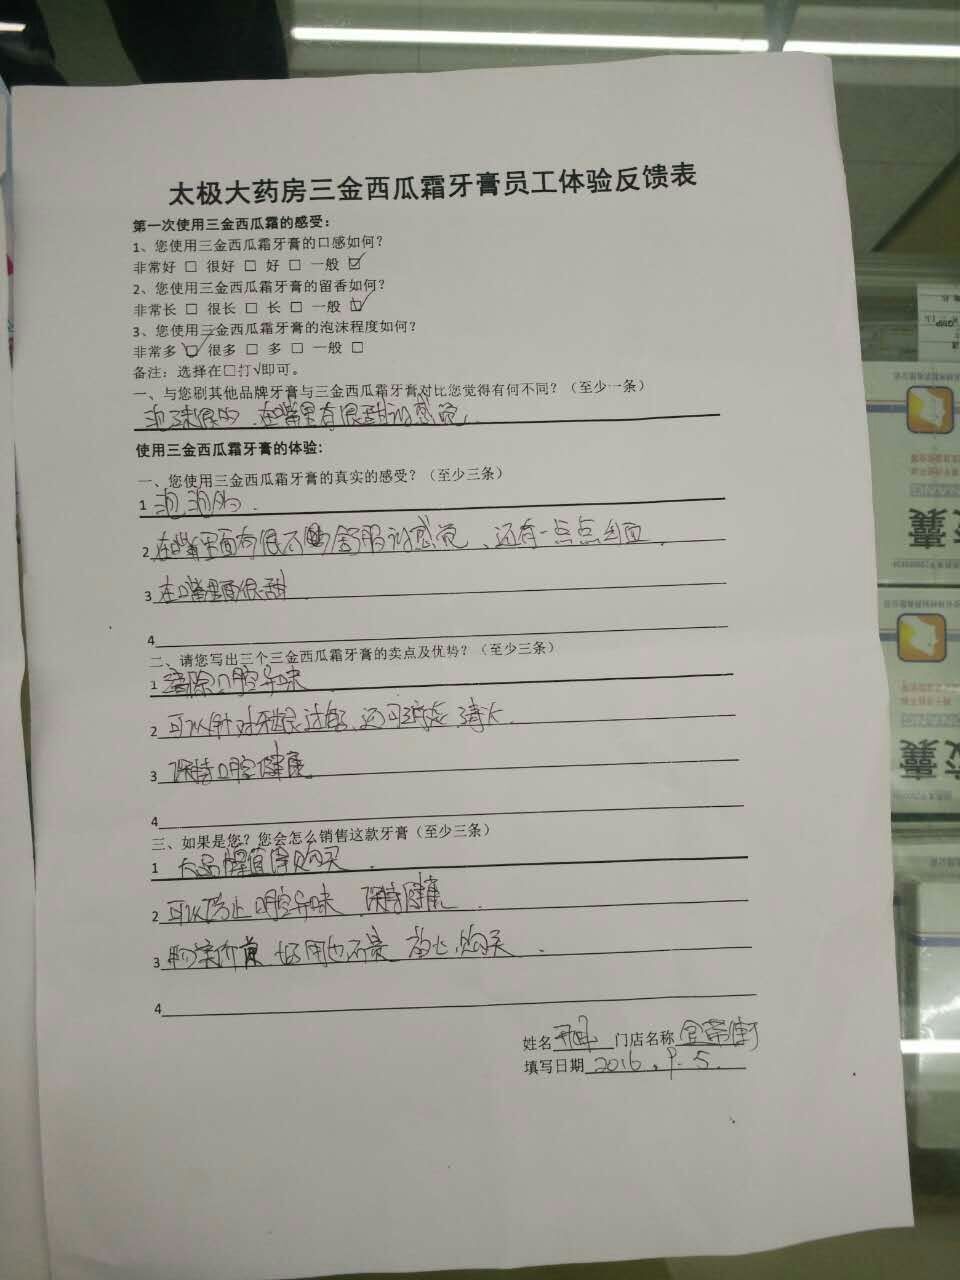 太极大药房三金西瓜霜牙膏员工体验反馈表
第一次使用三金西瓜霜的感受：
1、您使用三金西瓜霜牙膏的口感如何？
非常好 □ 很好 □ 好 □ 一般 ☑
2、您使用三金西瓜霜牙膏的留香如何？
非常长 □ 很长 □ 长 □ 一般 ☑
3、您使用三金西瓜霜牙膏的泡沫程度如何？
非常多 ☑ 很多 □ 多 □ 一般 □
备注：选择在□打√即可。
一、与您刷其他品牌牙膏与三金西瓜霜牙膏对比您觉得有何不同？（至少一条）
泡沫很多，在嘴里有很甜的感觉。
使用三金西瓜霜牙膏的体验:
一、您使用三金西瓜霜牙膏的真实的感受？（至少三条）
1 泡泡多.
2 在嘴里面有很不舒服的感觉、还有一点点
3 在嘴里面很甜
4
二、请您写出三个三金西瓜霜牙膏的卖点及优势？（至少三条）
1 清除口腔异味
2 可以针对牙龈 还可 清火.
3 保持口腔健康
4
三、如果是您？您会怎么销售这款牙膏（至少三条）
1 大品牌值得购买.
2 可以防止口腔异味 保持健康.
3 物美价廉 好用也不贵 放心购买.
4
姓名 门店名称
填写日期 2016.9.5.